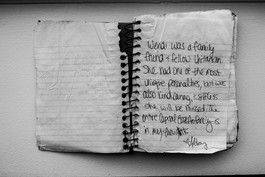 Wendi was a family
friend & fellow Unitarian.
She had one of the most
unique personalities, but was
also kind, caring,
she will be missed. The
entire Capital Gazette family is
in my thoughts.